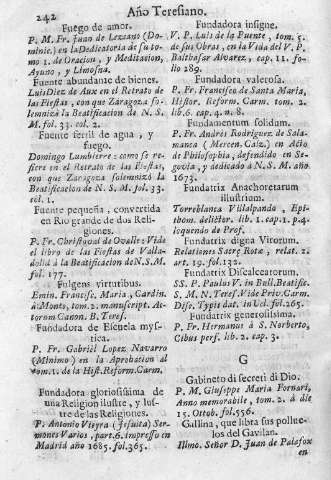 242 Año Teresiano.
Fuego de amor.
P. M. Fr. Juan de Lezano (Dominic.) en la Dedicatoria de su tomo
1. de Oracion, y Meditacion,
Ayuno, y Limosna.
Fuente abundante de bienes.
Luis Diez de Aux en el Retrato de
las Fiestas, con que Zaragoza solemnizò
la Beatificacion de N. S.
M. fol. 33. col. 2.
Fuente fertil de agua, y
fuego.
Domingo Lumbierre: como se refiere
en el Retrato de las Fiestas,
con que Zaragoza solemnizò la
Beatificacion de N. S. M. fol. 33.
col. 1.
Fuente pequeña, convertida
en Rio grande de dos Religiones.
P. Fr. Christoval de Ovalle: Vide
el libro de las Fiestas de Valladolid
a la Beatificacion de N. S. M.
fol. 177.
Fulgens virtutibus.
Emin. Francisc. Maria, Cardin.
à Monte, tom. 2. manuscript. Actorum
Canon. B. Teres.
Fundadora de Escuela mystica.
P. Fr. Gabriel Lopez Navarro
(Minimo) en la Aprobation al
Tom. 1. de la Hist. Reform. Carm.
Fundadora gloriosissima de
una Religion ilustre, y lustre
de las Religiones.
P. Antonio Vieyra (Jesuita) Sermones
Varios, part. 6. impresso en
Madrid año 1685. fol. 365.
Fundadora insigne.
V. P. Luis de la Puente, tom. 5.
de sus Obras, en la Vida del V. P.
Balthasar Alvarez, cap. 11. folio
289.
Fundadora valerosa.
P. Fr. Francisco de Santa Maria,
Histor. Reform. Carm. tom. 2.
lib. 6. cap. 4. n. 8.
Fundamentum solidum.
P. Fr. Andrès Rodriguez de Salamanca
(Mercen. Calz.) en Acto
de Philosophia, defendido en Segovia,
y dedicado à N. S. M. año.
1673.
Fundatrix Anachoretarum
illustrium.
Torreblanca Villalpando, Epithom.
delictor. lib. 1. cap. 1. p. 4.
loquendo de Prof.
Fundatrix digna Virorum.
Relationes Sacræ Rotæ, relat. 2.
art. 19. fol. 132.
Fundatrix Discalceatorum.
SS. P. Paulus V. in Bull. Beatific.
S. M. N. Teres. Vide Priv. Carm.
Disc. Typis dat. in Vol. fol. 265.
Fundatrix generosissima.
P. Fr. Hermanus à S. Norberto,
Cibus pers. lib. 2. cap. 3.
G
Gabineto di secreti di Dio.
P. M. Giuseppe Maria Fornari,
Anno memorabile, tom. 2. à die
15. Ottob. fol. 556.
Gallina, que libra sus polluelos
del Gavilan.
Illmo. Señor D. Juan de Palafox
en